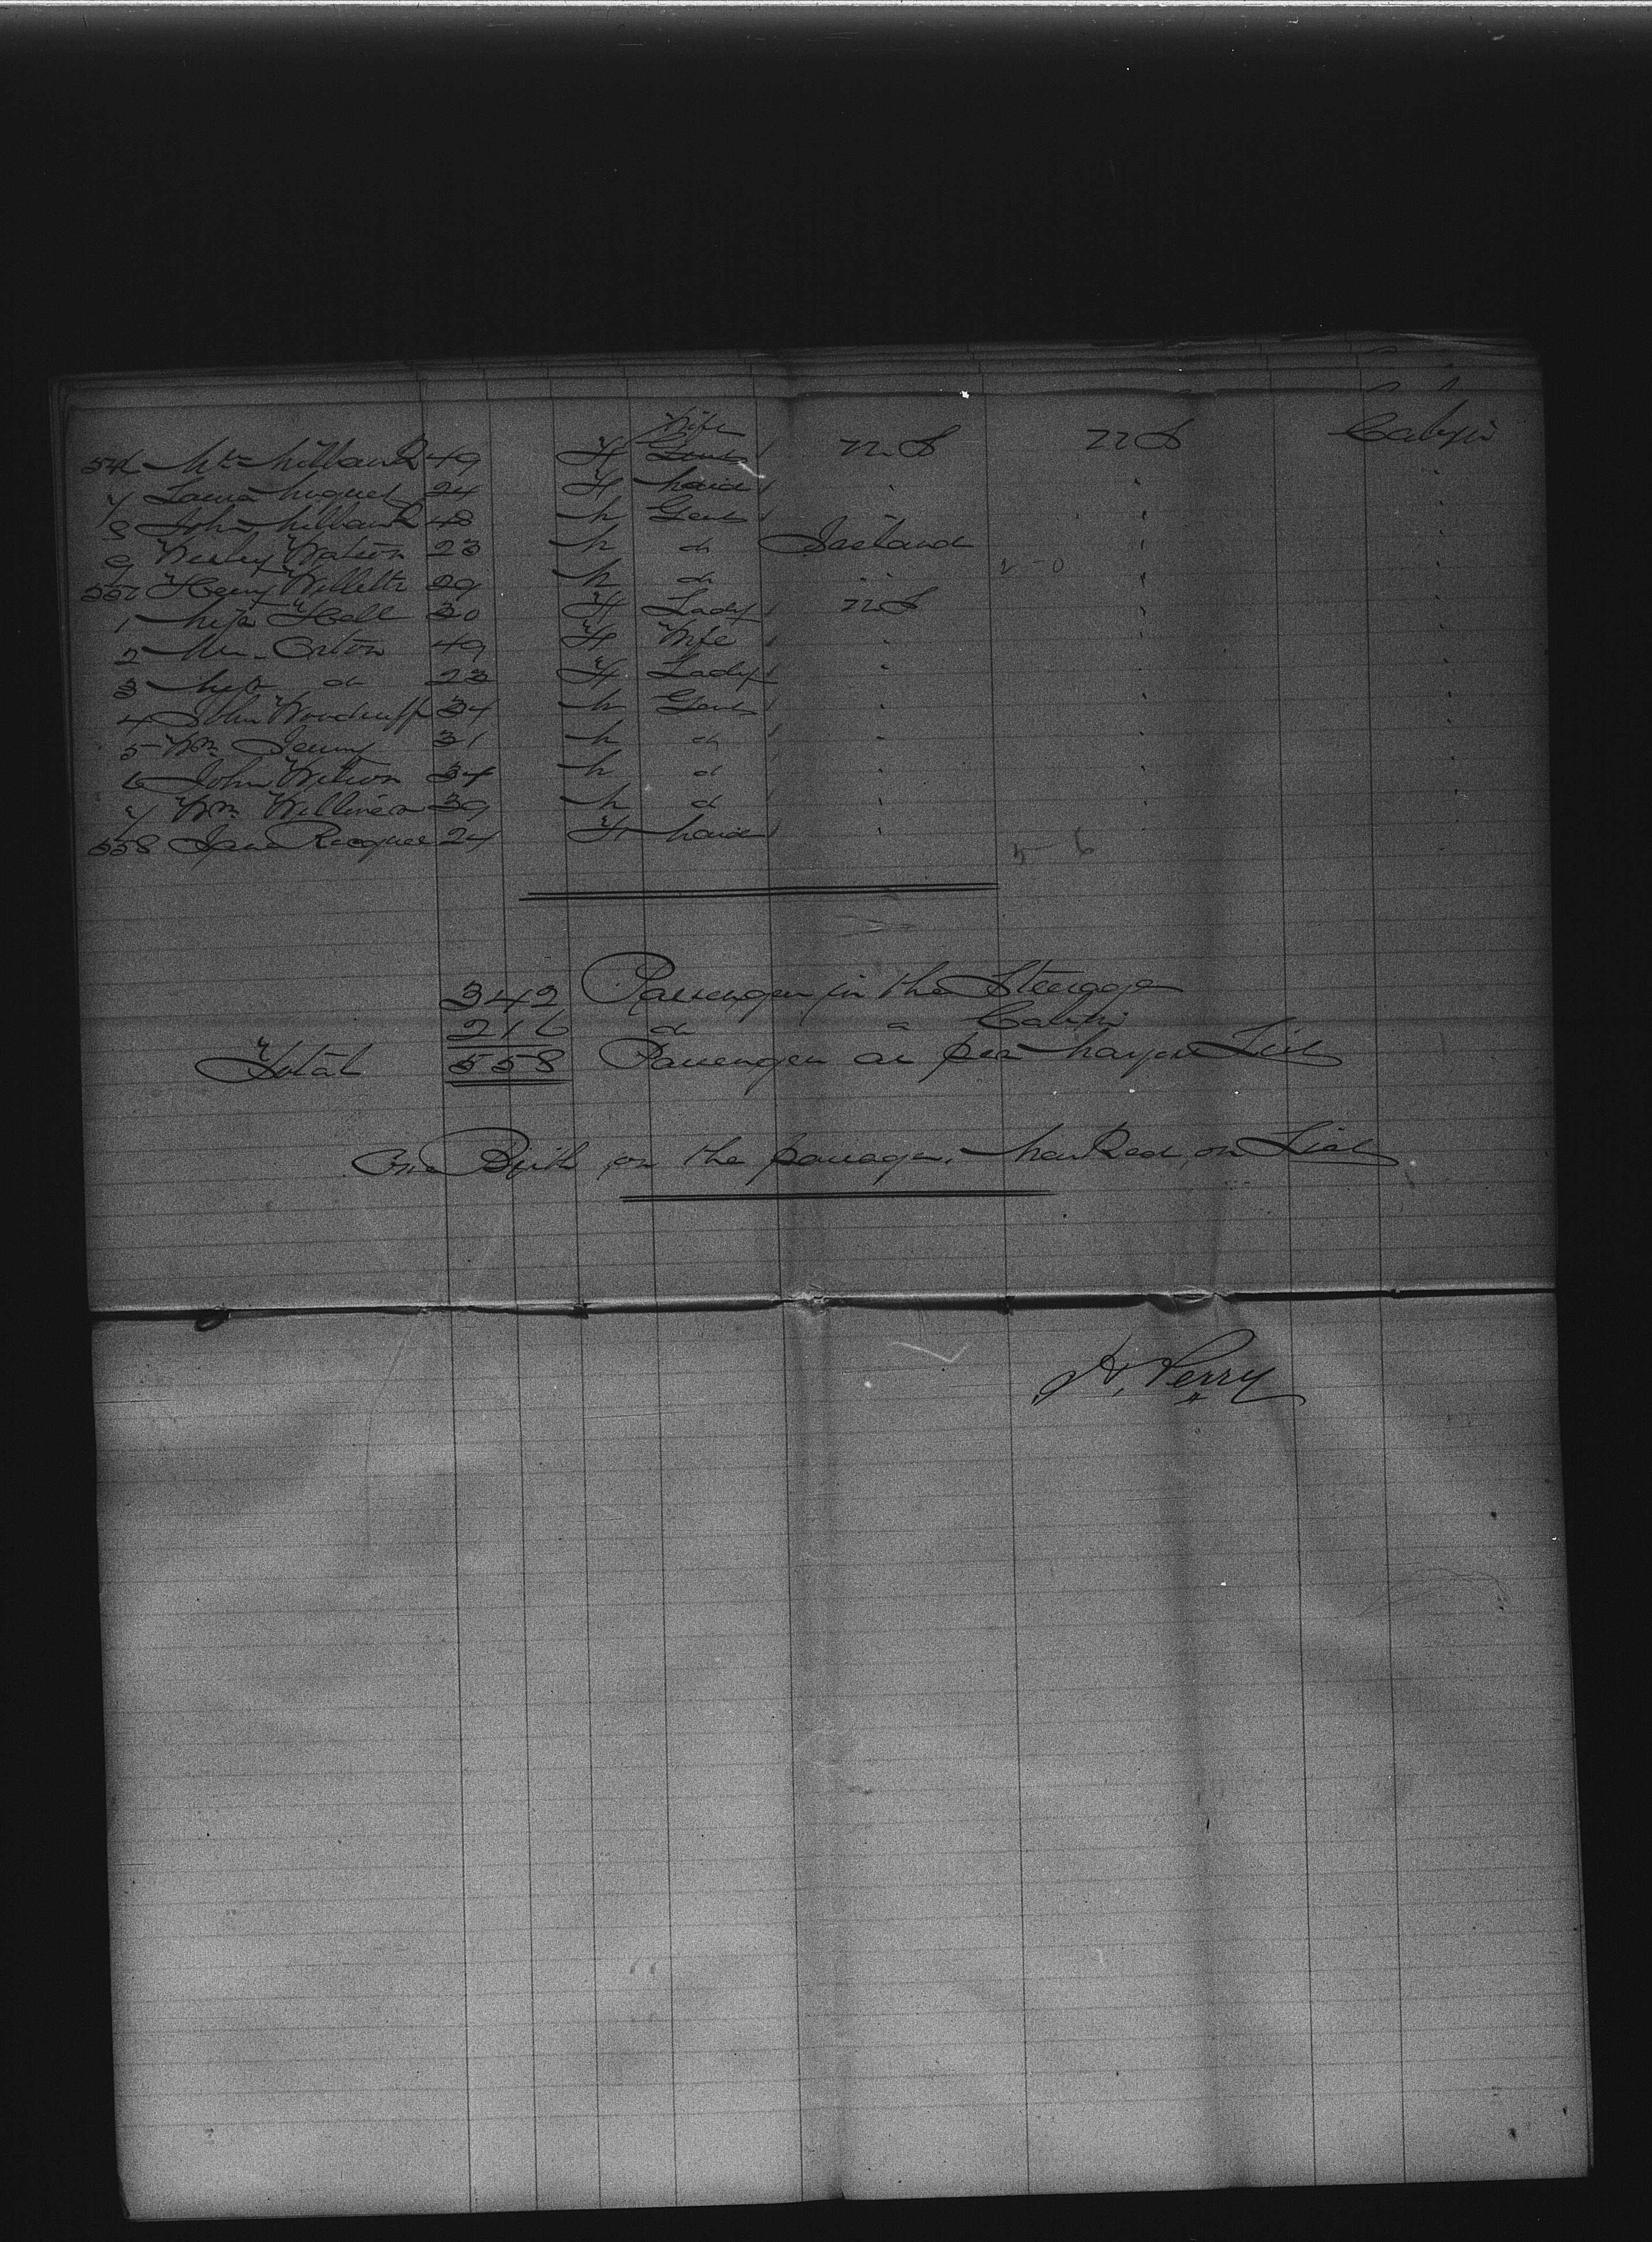 Wife
546 Mrs Millbank 49 F Gent U S U S Cabin
7 Laura Huguet 24 F Maid
8 John Millbank 48 M Gent
9 Wesley Watson 23 M do Ireland
550 Henry Willetts 29 M do
1 Miss Hall 30 F Lady U S
2 Mrs Orton 49 F Wife
3 Miss do 23 F Lady
4 John Woodruff 34 M Gent
5 Wm 31 M do
6 John Wilson 34 M do
7 Wm 39 M do
558 Jane 24 F Maid
5-6
342 Passengers in the Steerage
216 do Cabin
Total 558 Passengers as per List
One Birth on the passage. Marked on List
H. Perry